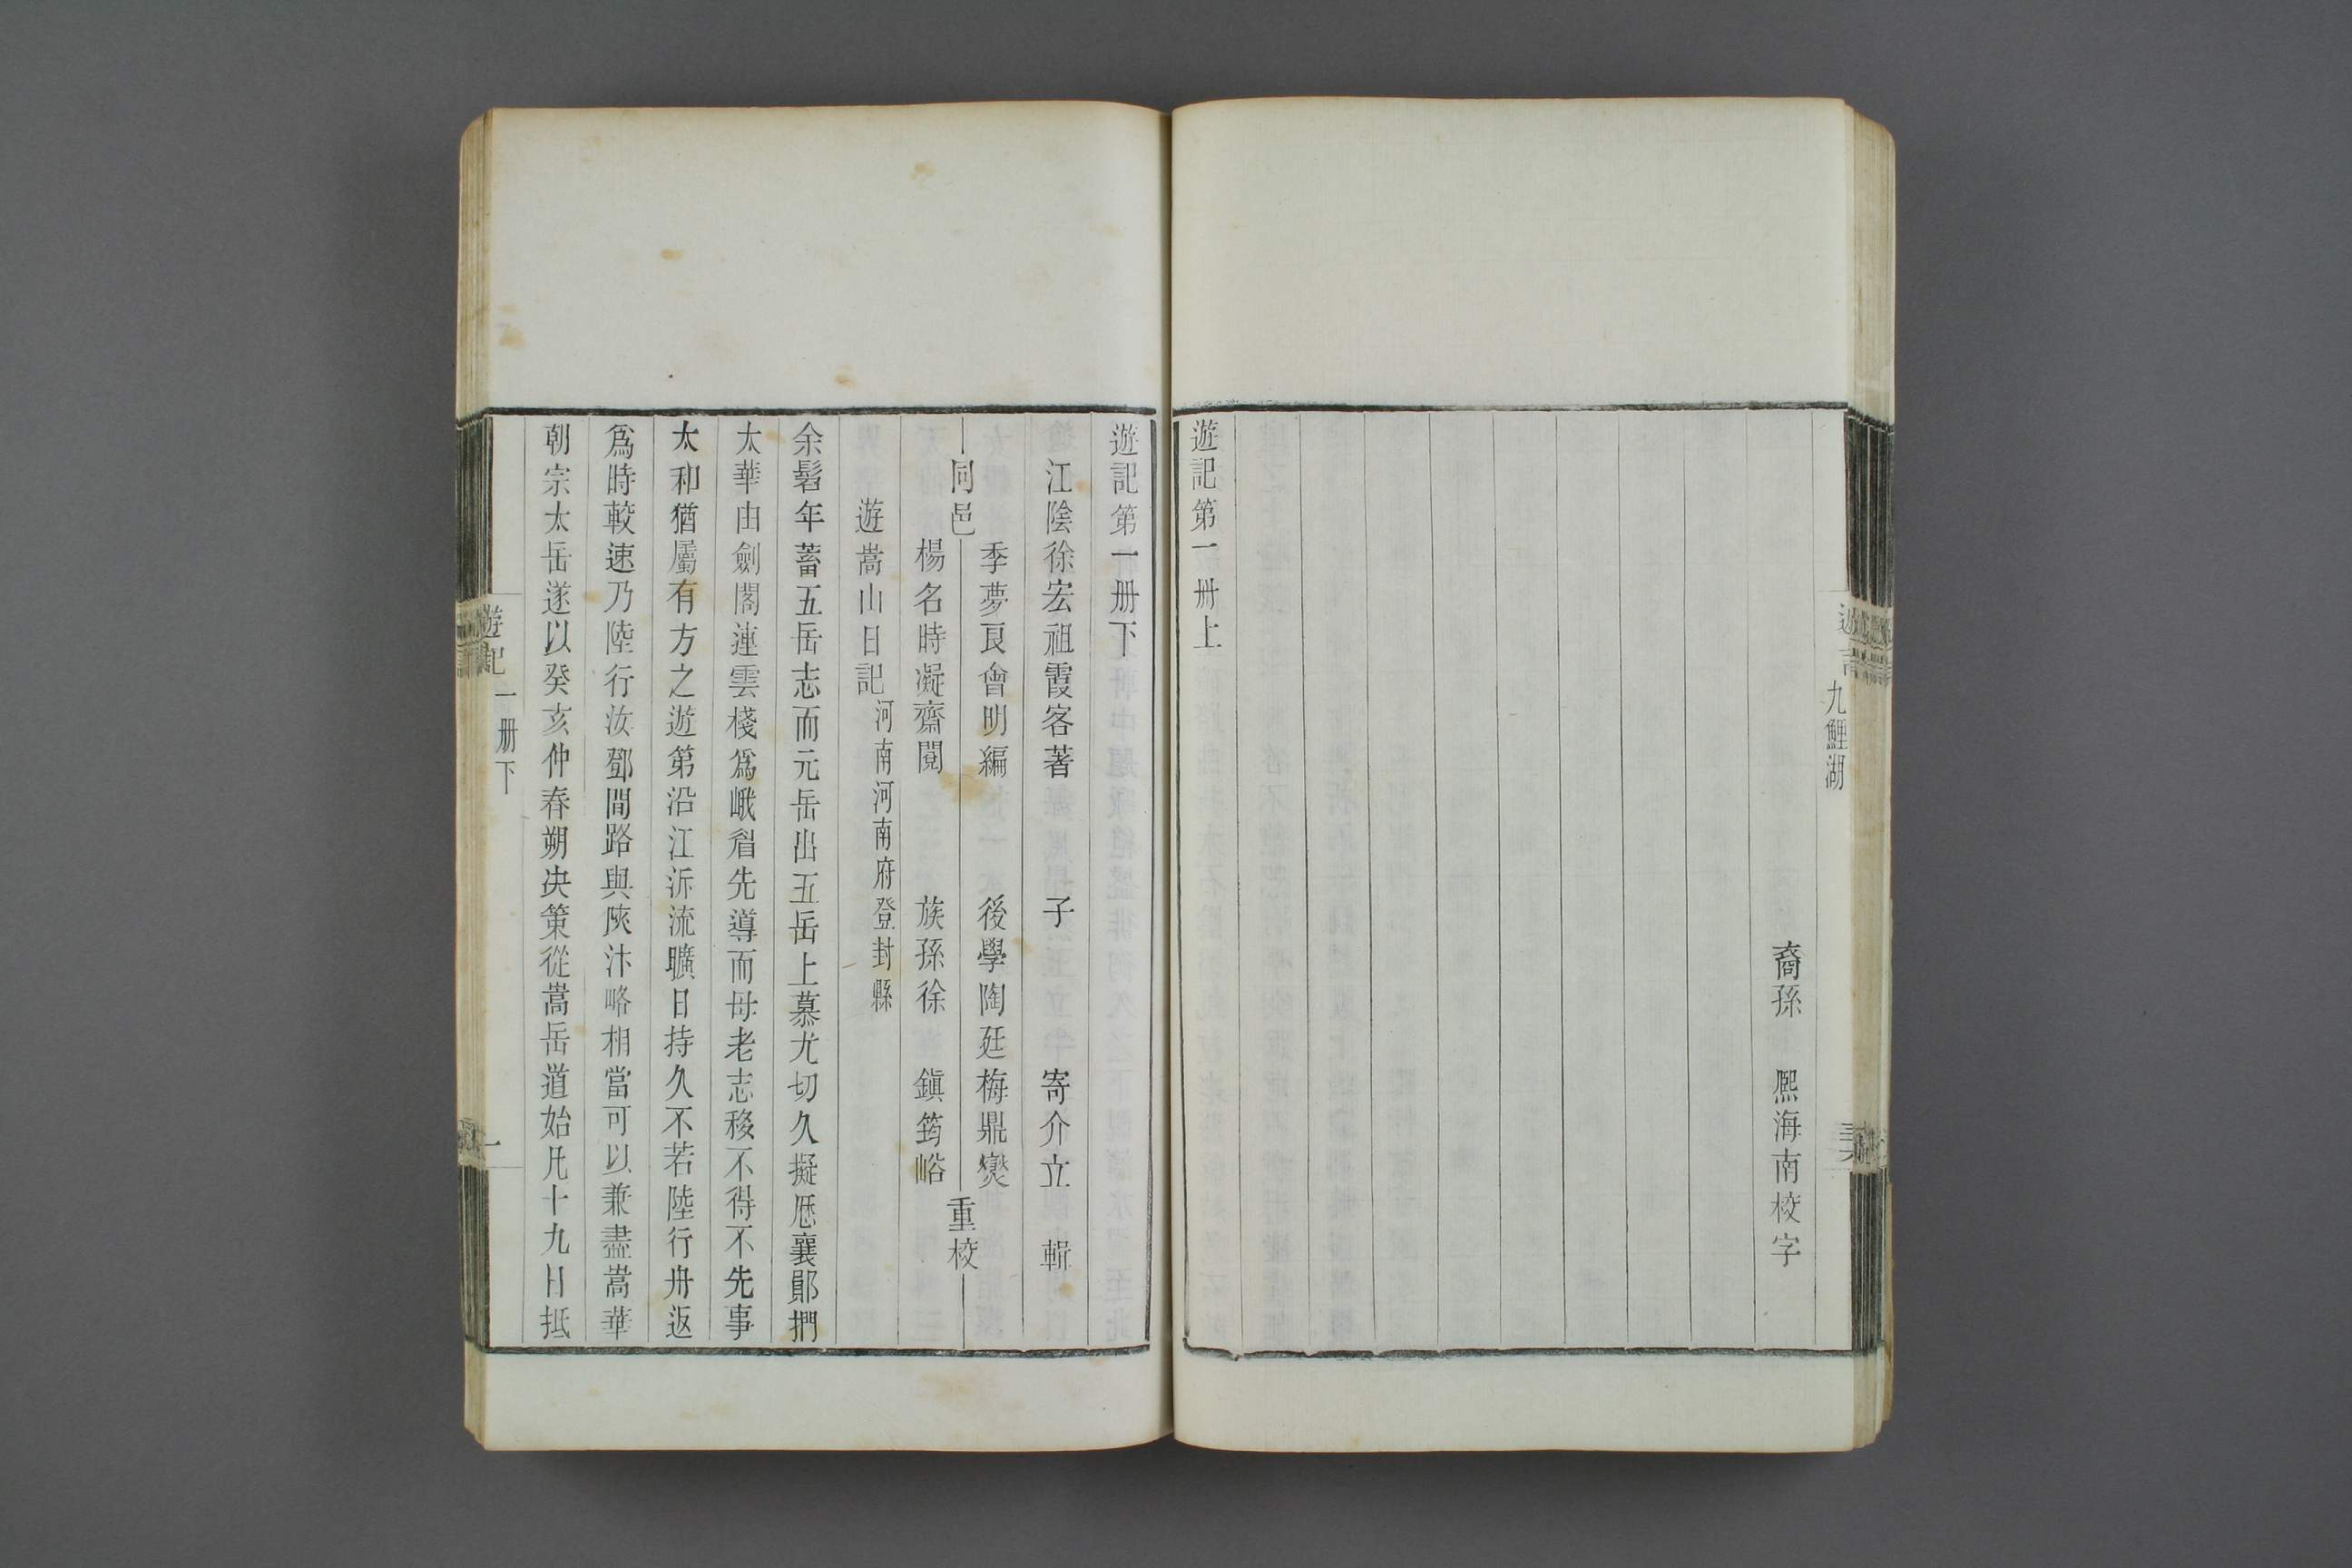 九鯉湖
裔孫 熙海南校字
遊記第一冊上
遊記第一冊下
江陰徐宏祖霞客著 子 寄介立 輯
同邑
季夢良會明編 後學陶廷梅鼎爕
楊名時凝齋閱 族孫徐 鎮筠峪
重校
遊嵩山日記河南河南府登封縣
余髫年蓄五岳志而元岳出五岳上慕尤切久擬歷襄鄖捫
太華由劍閣蓮雲棧爲峨眉先導而母老志移不得不先事
太和猶屬有方之遊第沿江泝流曠日持久不若陸行舟返
爲時較速乃陸行汝鄧間路與陝汴略相當可以兼盡嵩華
朝宗太岳遂以癸亥仲春朔决策從嵩岳道始凡十九日抵
遊記 一冊下 一